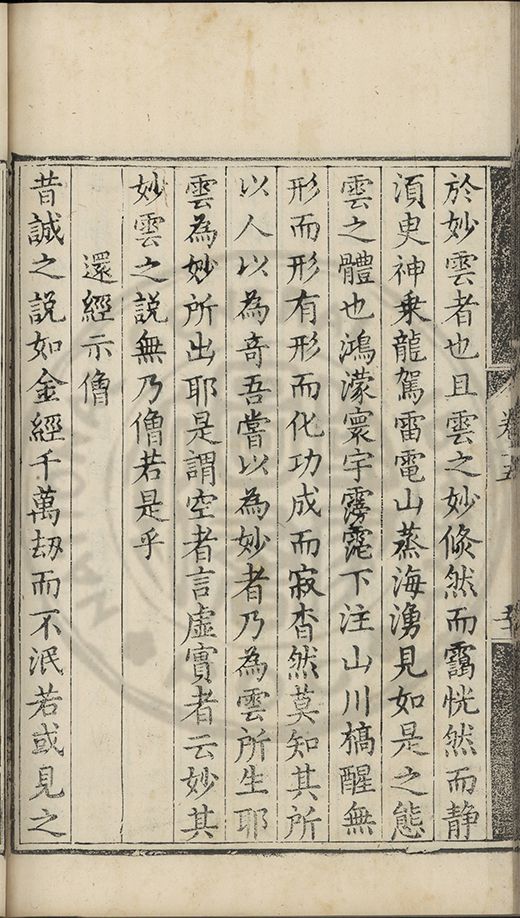 於妙雲者也且雲之妙倐然而靄恍然而静
湏臾神乗龍駕雷電山蒸海湧見如是之態
雲之體也鴻濛寰宇霶霑下注山川槁醒無
形而形有形而化功成而寂杳然莫知其所
以人以為奇吾嘗以為妙者乃為雲所生耶
雲為妙所出耶是謂空者言虛實者云妙其
妙雲之說無乃僧若是乎
還經示僧
昔誠之說如金經千萬刼而不泯若或見之
卷五